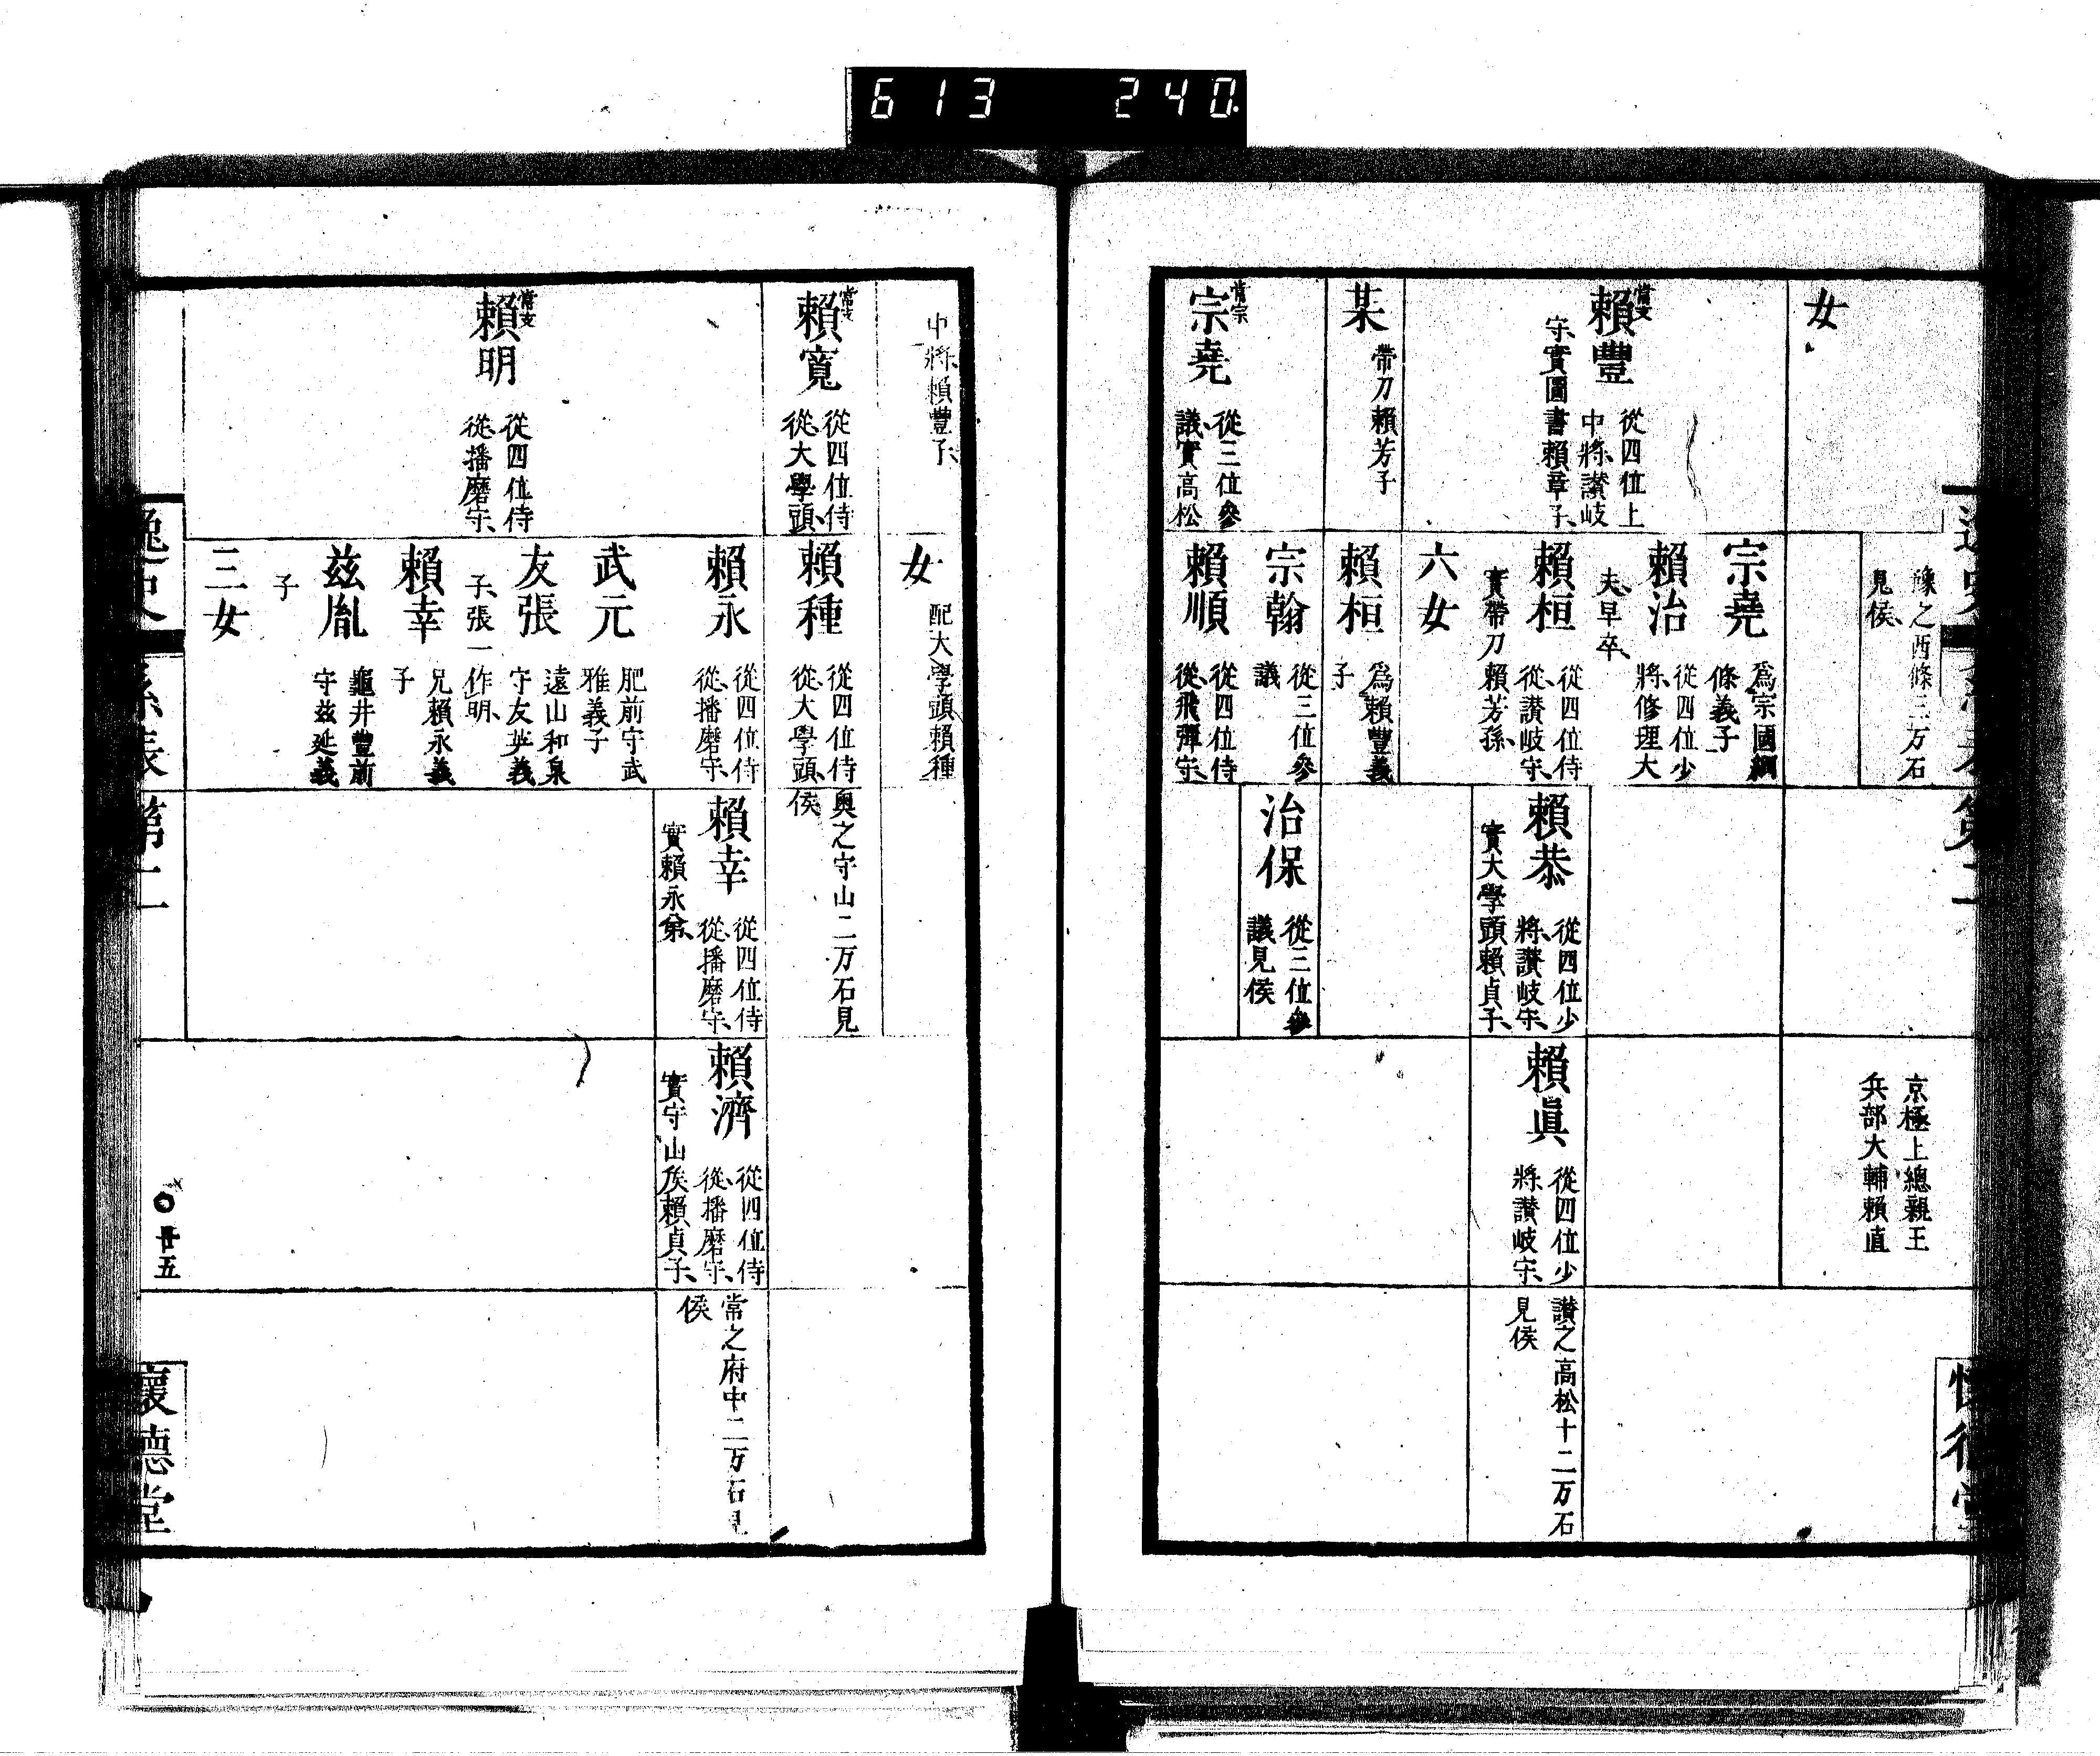 613 240
女
常支
賴豐
從四位上
中將、讚岐
守、實圖書賴章子、
某
帶刀賴芳子
常宗
宗堯
從三位參
議、實高松
豫之西條三万石
見侯、
宗堯
爲宗國綱
條義子
賴治
從四位少
將、修理大
夫、早卒、
賴桓
從四位侍
從、讚岐守、
實帶刀賴芳孫、
六女
賴桓
爲賴豐義
子
宗翰
從三位參
議
賴順
從四位侍
從、飛彈守、
賴恭
從四位少
將、讚岐守、
實大學頭賴貞子、
治保
從三位參
議見侯
京極上總親王
兵部大輔賴直
賴眞
從四位少
將、讚岐守、
讚之高松十二万石
見侯
中將賴豐子、
賴寬
從四位侍
從、大學頭、
常支
賴明
從四位侍
從、播磨守、
女
配大學頭賴種
賴種
從四位侍
從、大學頭、
賴永
從四位侍
從、播磨守、
武元
肥前守武
雅義子
友張
遠山和泉
守友英義
子、張一作明、
賴幸
兄賴永義
子
茲胤
龜井豐前
守茲延義
子
三女
奧之守山二万石見
侯
賴幸
從四位侍
從、播磨守、
實賴永弟、
賴濟
從四位侍
從、播磨守、
實守山侯賴貞子、
常之府中二万石見
侯
逸史
系表
第二
○
廿五
懷德堂